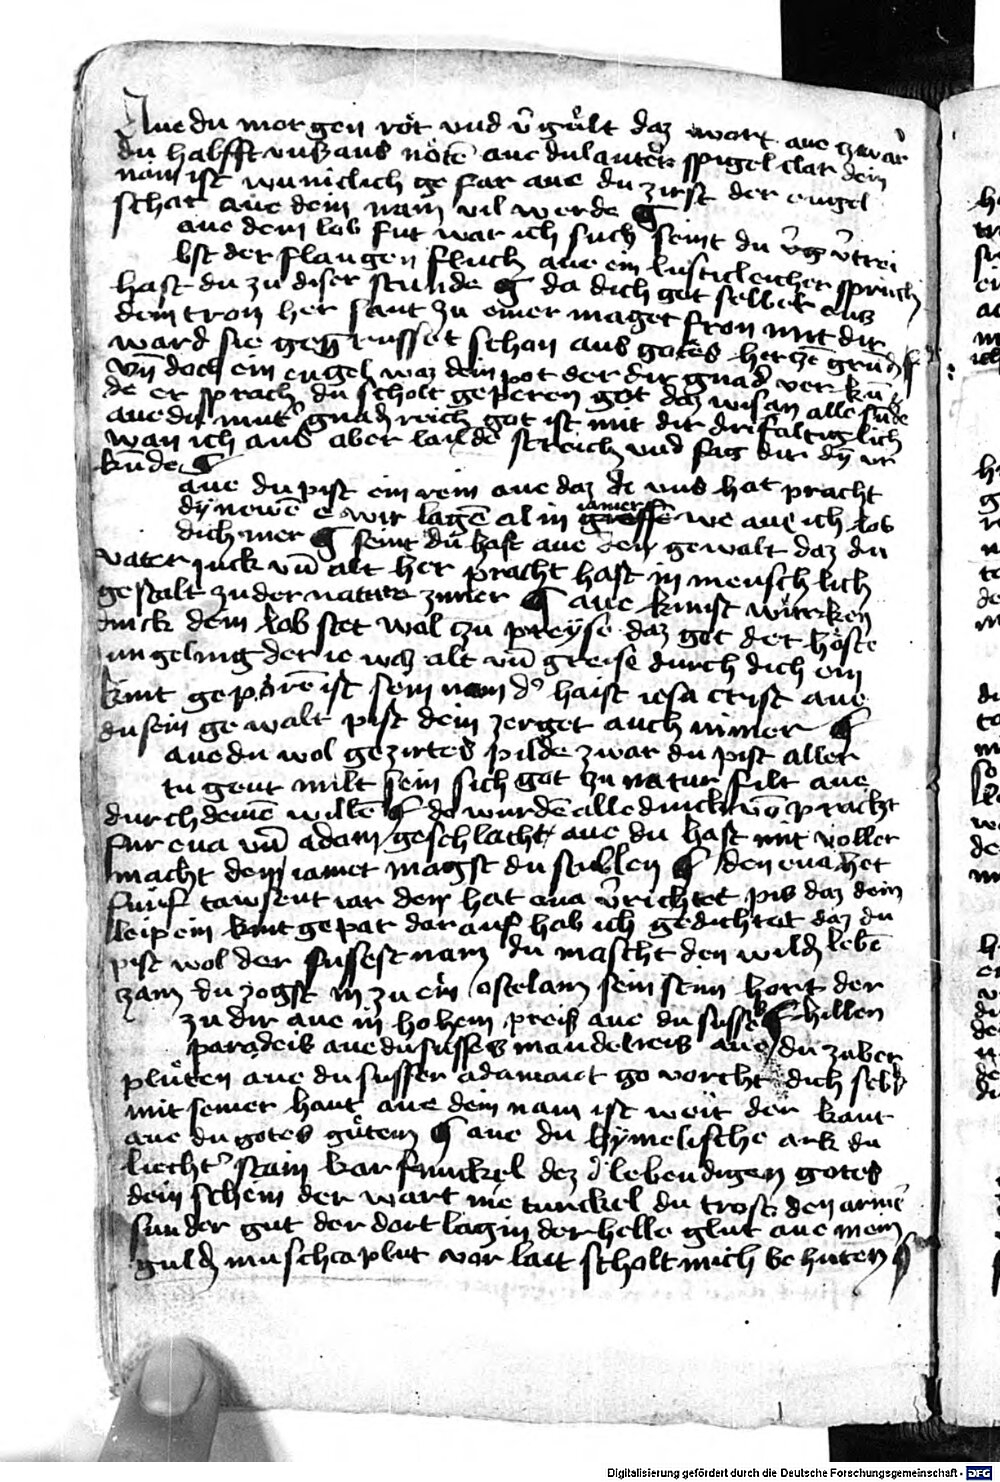 Aue du morgen röt vnd v̄gült daz wort aue zwar
du halfft vns aus nötē aue du lauter spigel clar dein
nam ist wuniclich ge far aue du zirst der engel
schar aue dein nam vil werde
aue dem lob fur war ich such seint du v̄g v̄trei
bst der slangen fluch aue ein lusticleicher spruch
hast du zu diser stunde do dich got selber aus
dem tron her sant zu einer maget fron mit dir
ward sie gegrusset schon aus gotes hertzē grund
vn̄ doch ein engel waz dein pot der dir gnad ver kū
de er sprach du scholt geperen got daz wisan alle sūde
aue du mut' gnadn̄ reich got ist mit dir drifaltiglich
wan ich aus aber landē streich vnd sag dir dÿ vr
kunde
aue du pist ein rein aue daz vns hat pracht
dÿ newē e wir lagē al in iamer we aue ich lob
dich mer seint du hast aue den gewalt daz du
vater junk vn̄ alt her pracht hast in menschlich
gestalt zu der nature zimer aue kunst wurcken
dein lob stet wol zu preyse daz got der höste
iungeling der ie waz alt vn̄ greise durch dich ein
kint geporē ist sein nam d' haist iesu crist aue
du sein gewalt pist dein zerget auch nimer
aue du wol gezirtes pilde zwar du pist aller
tugent milt sein sich got zu natur filt aue
durch deinē willē do wurdē alle dinck vō pracht
fur eua vn̄ adam geschlacht aue du hast mit voller
macht dem iamer magst du stillen den eua het
funf tawsent iar den hat aua v̄richtet pis daz dein
leip ein kint gepar dar auf hab ich gedichtet daz du
pist wol der sussest nam du mascht den wildn̄ lebē
zam du zogst in zu ein ostelam sein stim hort der
zu dir aue in hohem preis aue du susse hillen
paradeis aue du susses mandelreis aue du zuber
plüten aue du susser adamant go vorcht dich selb
mit seiner hant aue dein nam ist weit der kant
aue du gotes gütem aue du hymelische ark du
liecht' stain karfunckel dez lebendigen gotes
dein schein der wart nie tunckel du trost den armē
sunder gut der dort lag in der helle glut aue mein
guldn̄ muschcaplut vor lait scholt mich behuten
Digitalisierung gefördert durch die Deutsche Forschungsgemeinschaft - DFG